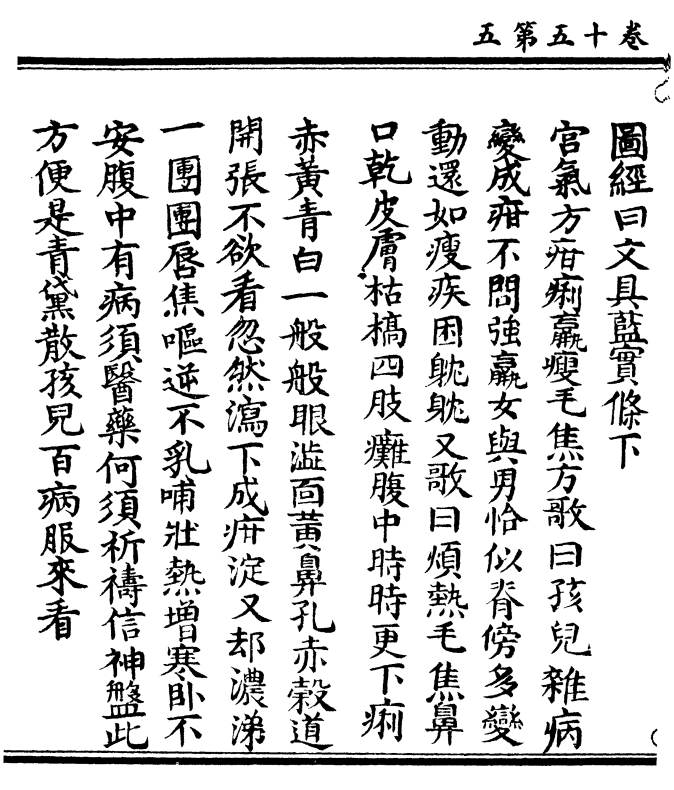 卷十五第五
圖經曰文具藍實條下
宮氣方疳痢羸瘦毛焦方歌曰孩兒雜病
變成疳不問強羸女與男恰似脊傍多變
動還如瘦疾困躭躭又歌曰煩熱毛焦鼻
口乾皮膚枯槁四肢癱腹中時時更下痢
赤黃青白一般般眼澁靣黃鼻孔赤穀道
開張不欲看忽然瀉下成疳淀又却濃涕
一團團唇焦嘔逆不乳哺壯熱增寒卧不
安腹中有病須醫藥何須祈禱信神盤此
方便是青黛散孩兒百病服來看